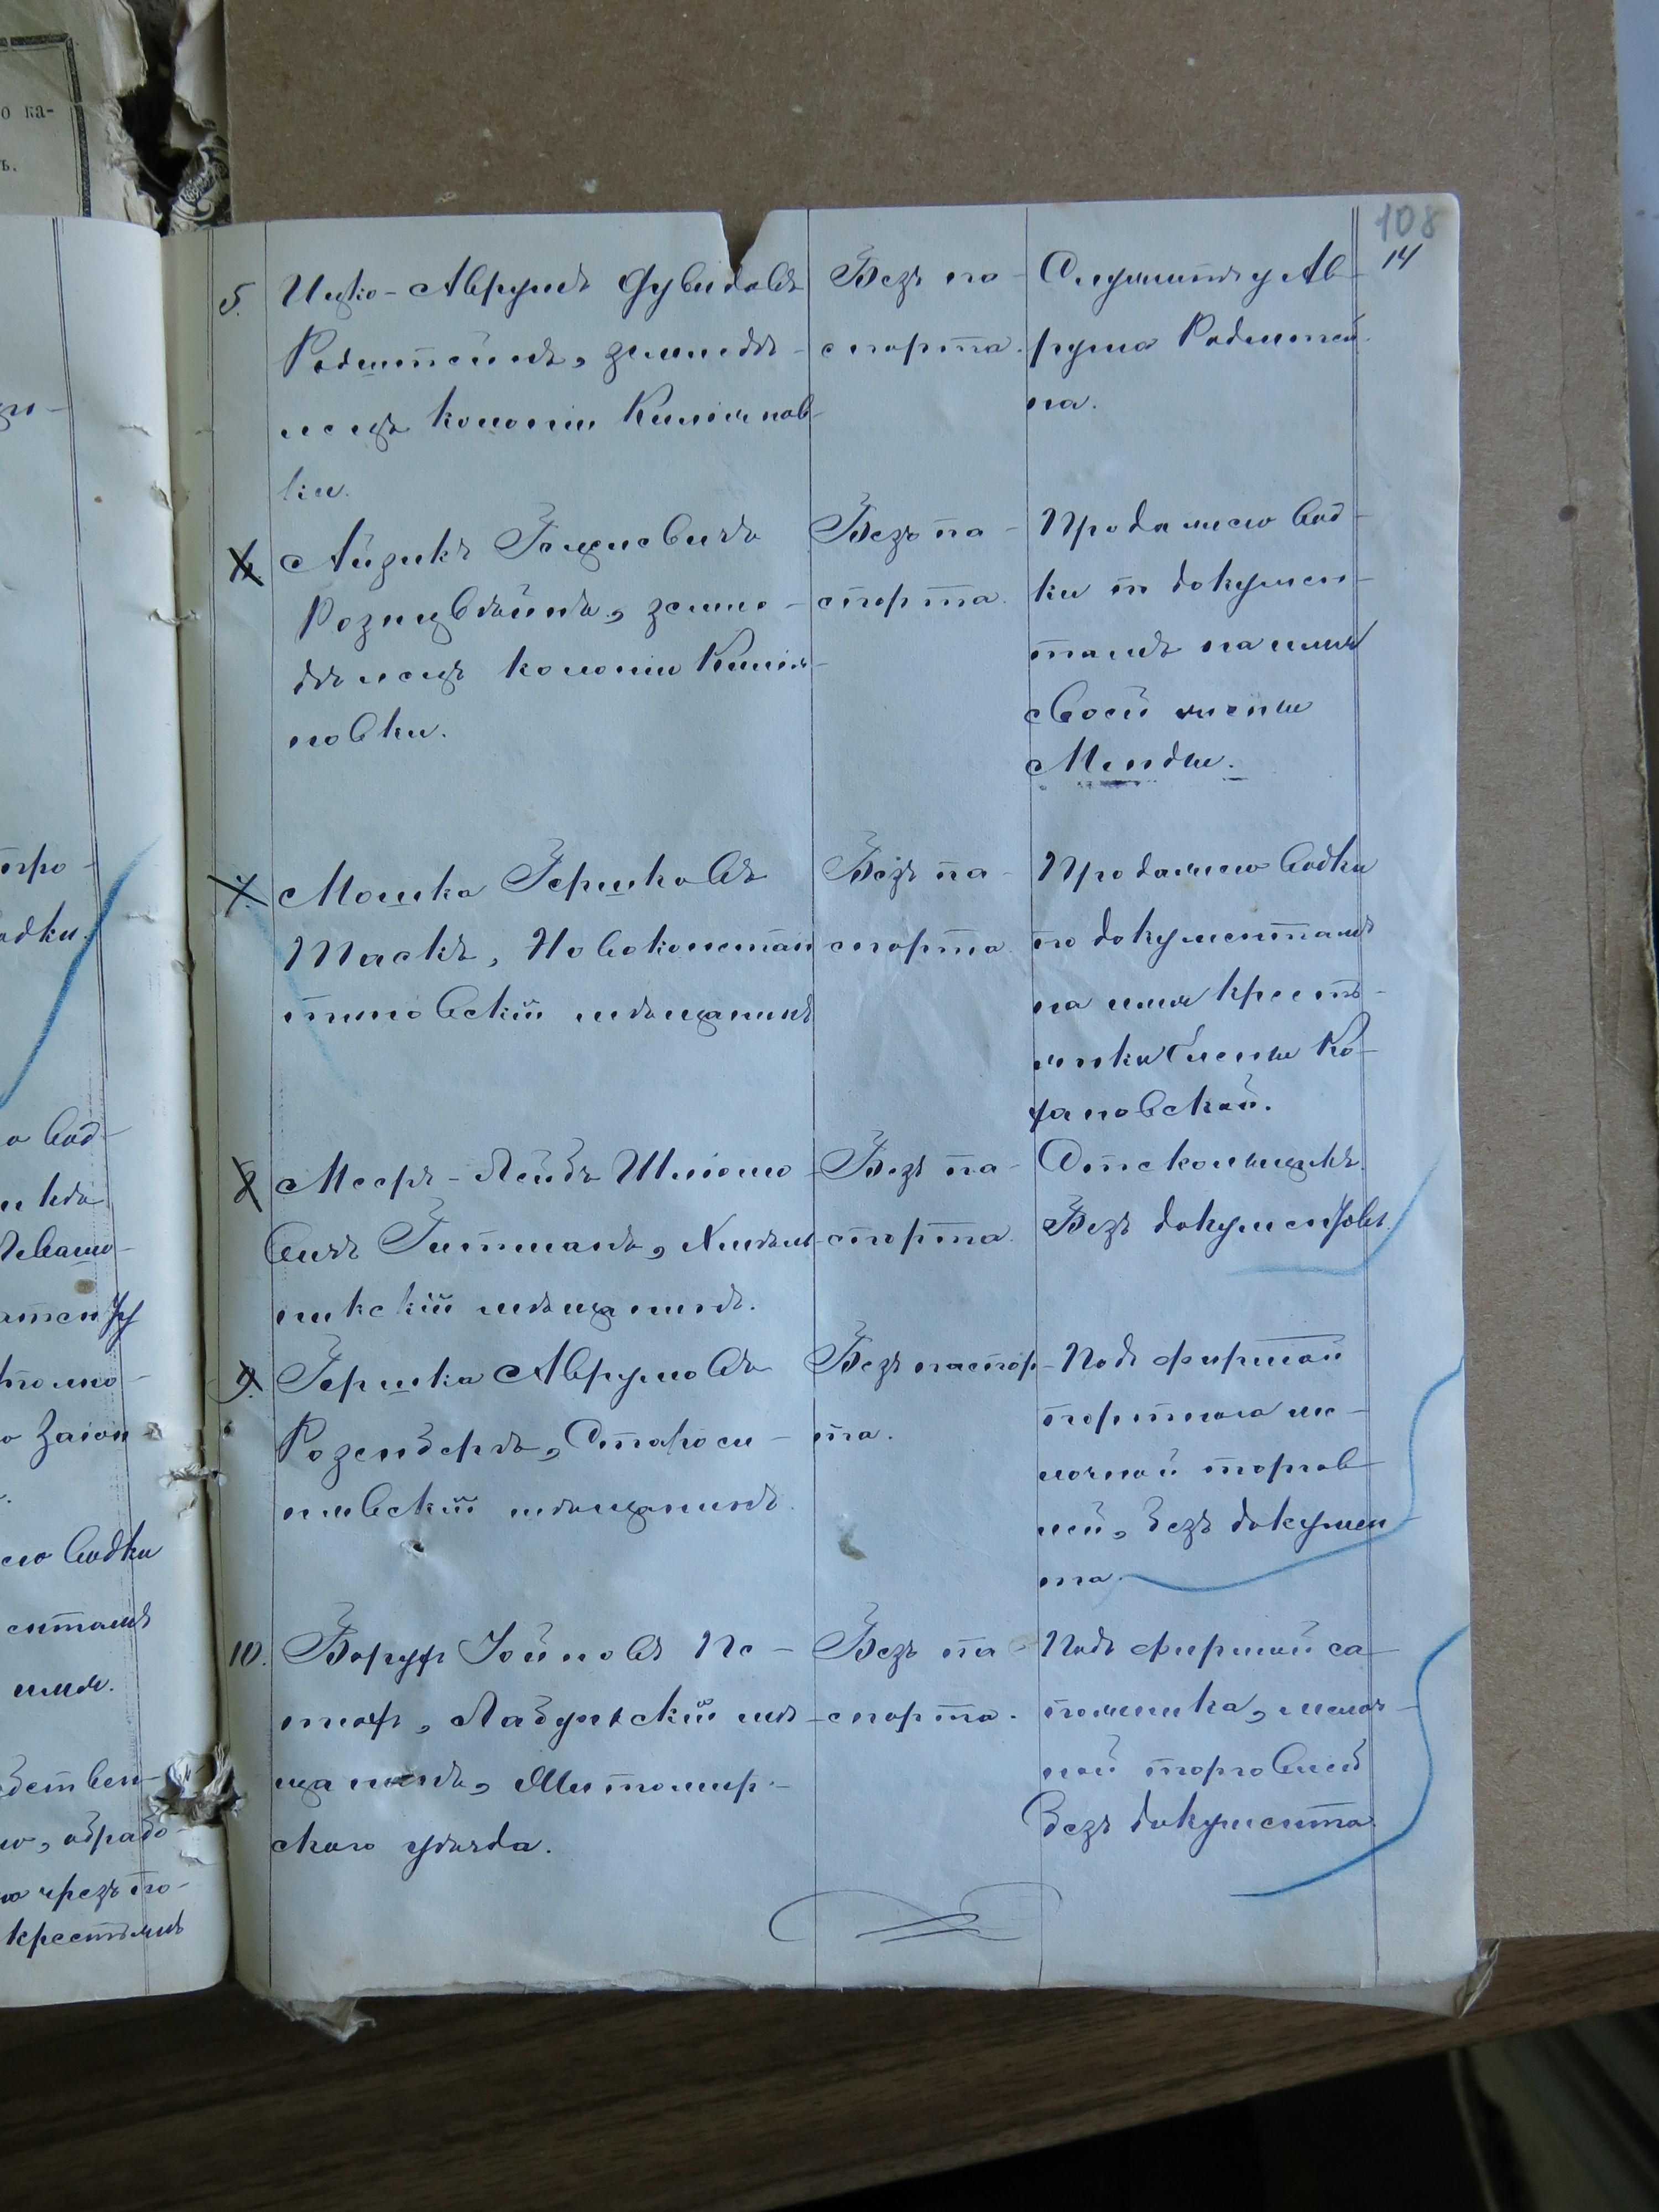 108
14
5. Ицко-Аврумъ Дувидовъ
Родштейнъ, земледѣ-
лецъ колоніи Килія нов-
ки.
Безъ па-
спорта.
Служитъ у Ав-
рума Родштей-
на.
6. Айзикъ Герцевичъ
земле-
дѣлецъ колоніи
новки.
Безъ па-
спорта.
Продажею вод-
ки по докумен-
тамъ на имя
своей жены
Менди.
7. Мошка Гершковъ
Таскъ, Новоконстан
тиновскій мѣщанинъ
Безъ па-
спорта
Продажею водки
по документамъ
на имя кресть-
янки Елены Ко-
хановской.
8. Мееръ-Лейбъ Шліомо-
вичъ Гитманъ, Хмѣль
никскій мѣщанинъ.
Безъ па-
спорта.
Отскольщикъ.
Безъ документовъ.
9. Гершка Аврумовъ
Розенбергъ, Староси-
нявскій мѣщанинъ.
Безъ паспор-
та.
Подъ фирмой
портнаго ме-
лочной торгов-
лей, безъ докумен
та.
10. Борух Іойновъ Пе-
Лабунскій мѣ-
щанинъ, Житомир-
скаго уѣзда.
Безъ па-
спорта.
Подъ фирмой са-
пожника, мелоч-
ной торговлей
безъ документа.
о ка-
ъ.
адки.
о вод-
ею водки
ентамъ
имя.
бствен-
ю, обрабо-
чрезъ по-
крестьянъ